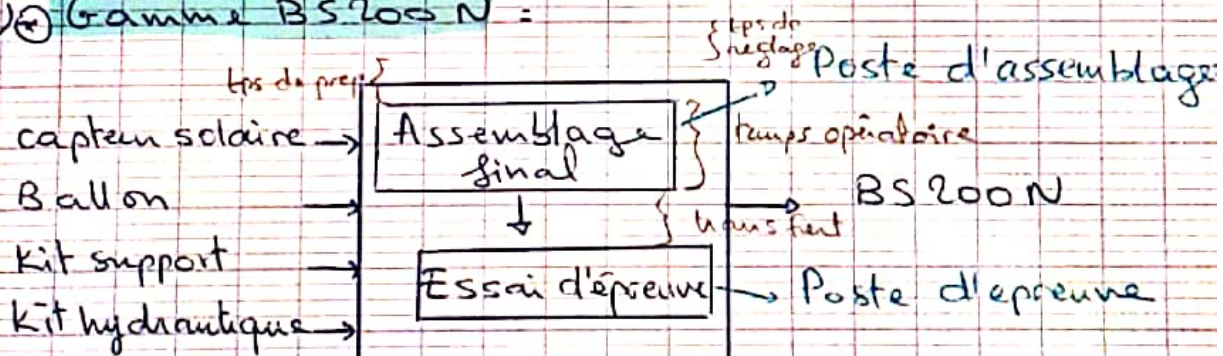 Gamme BS200N :
tps de reglage
Poste d'assemblage
tps de prep
capteur solaire
Assemblage final
temps opératoire
Ballon
BS200N
transfert
Kit support
Essai d'épreuve
Poste d'epreuve
Kit hydraulique